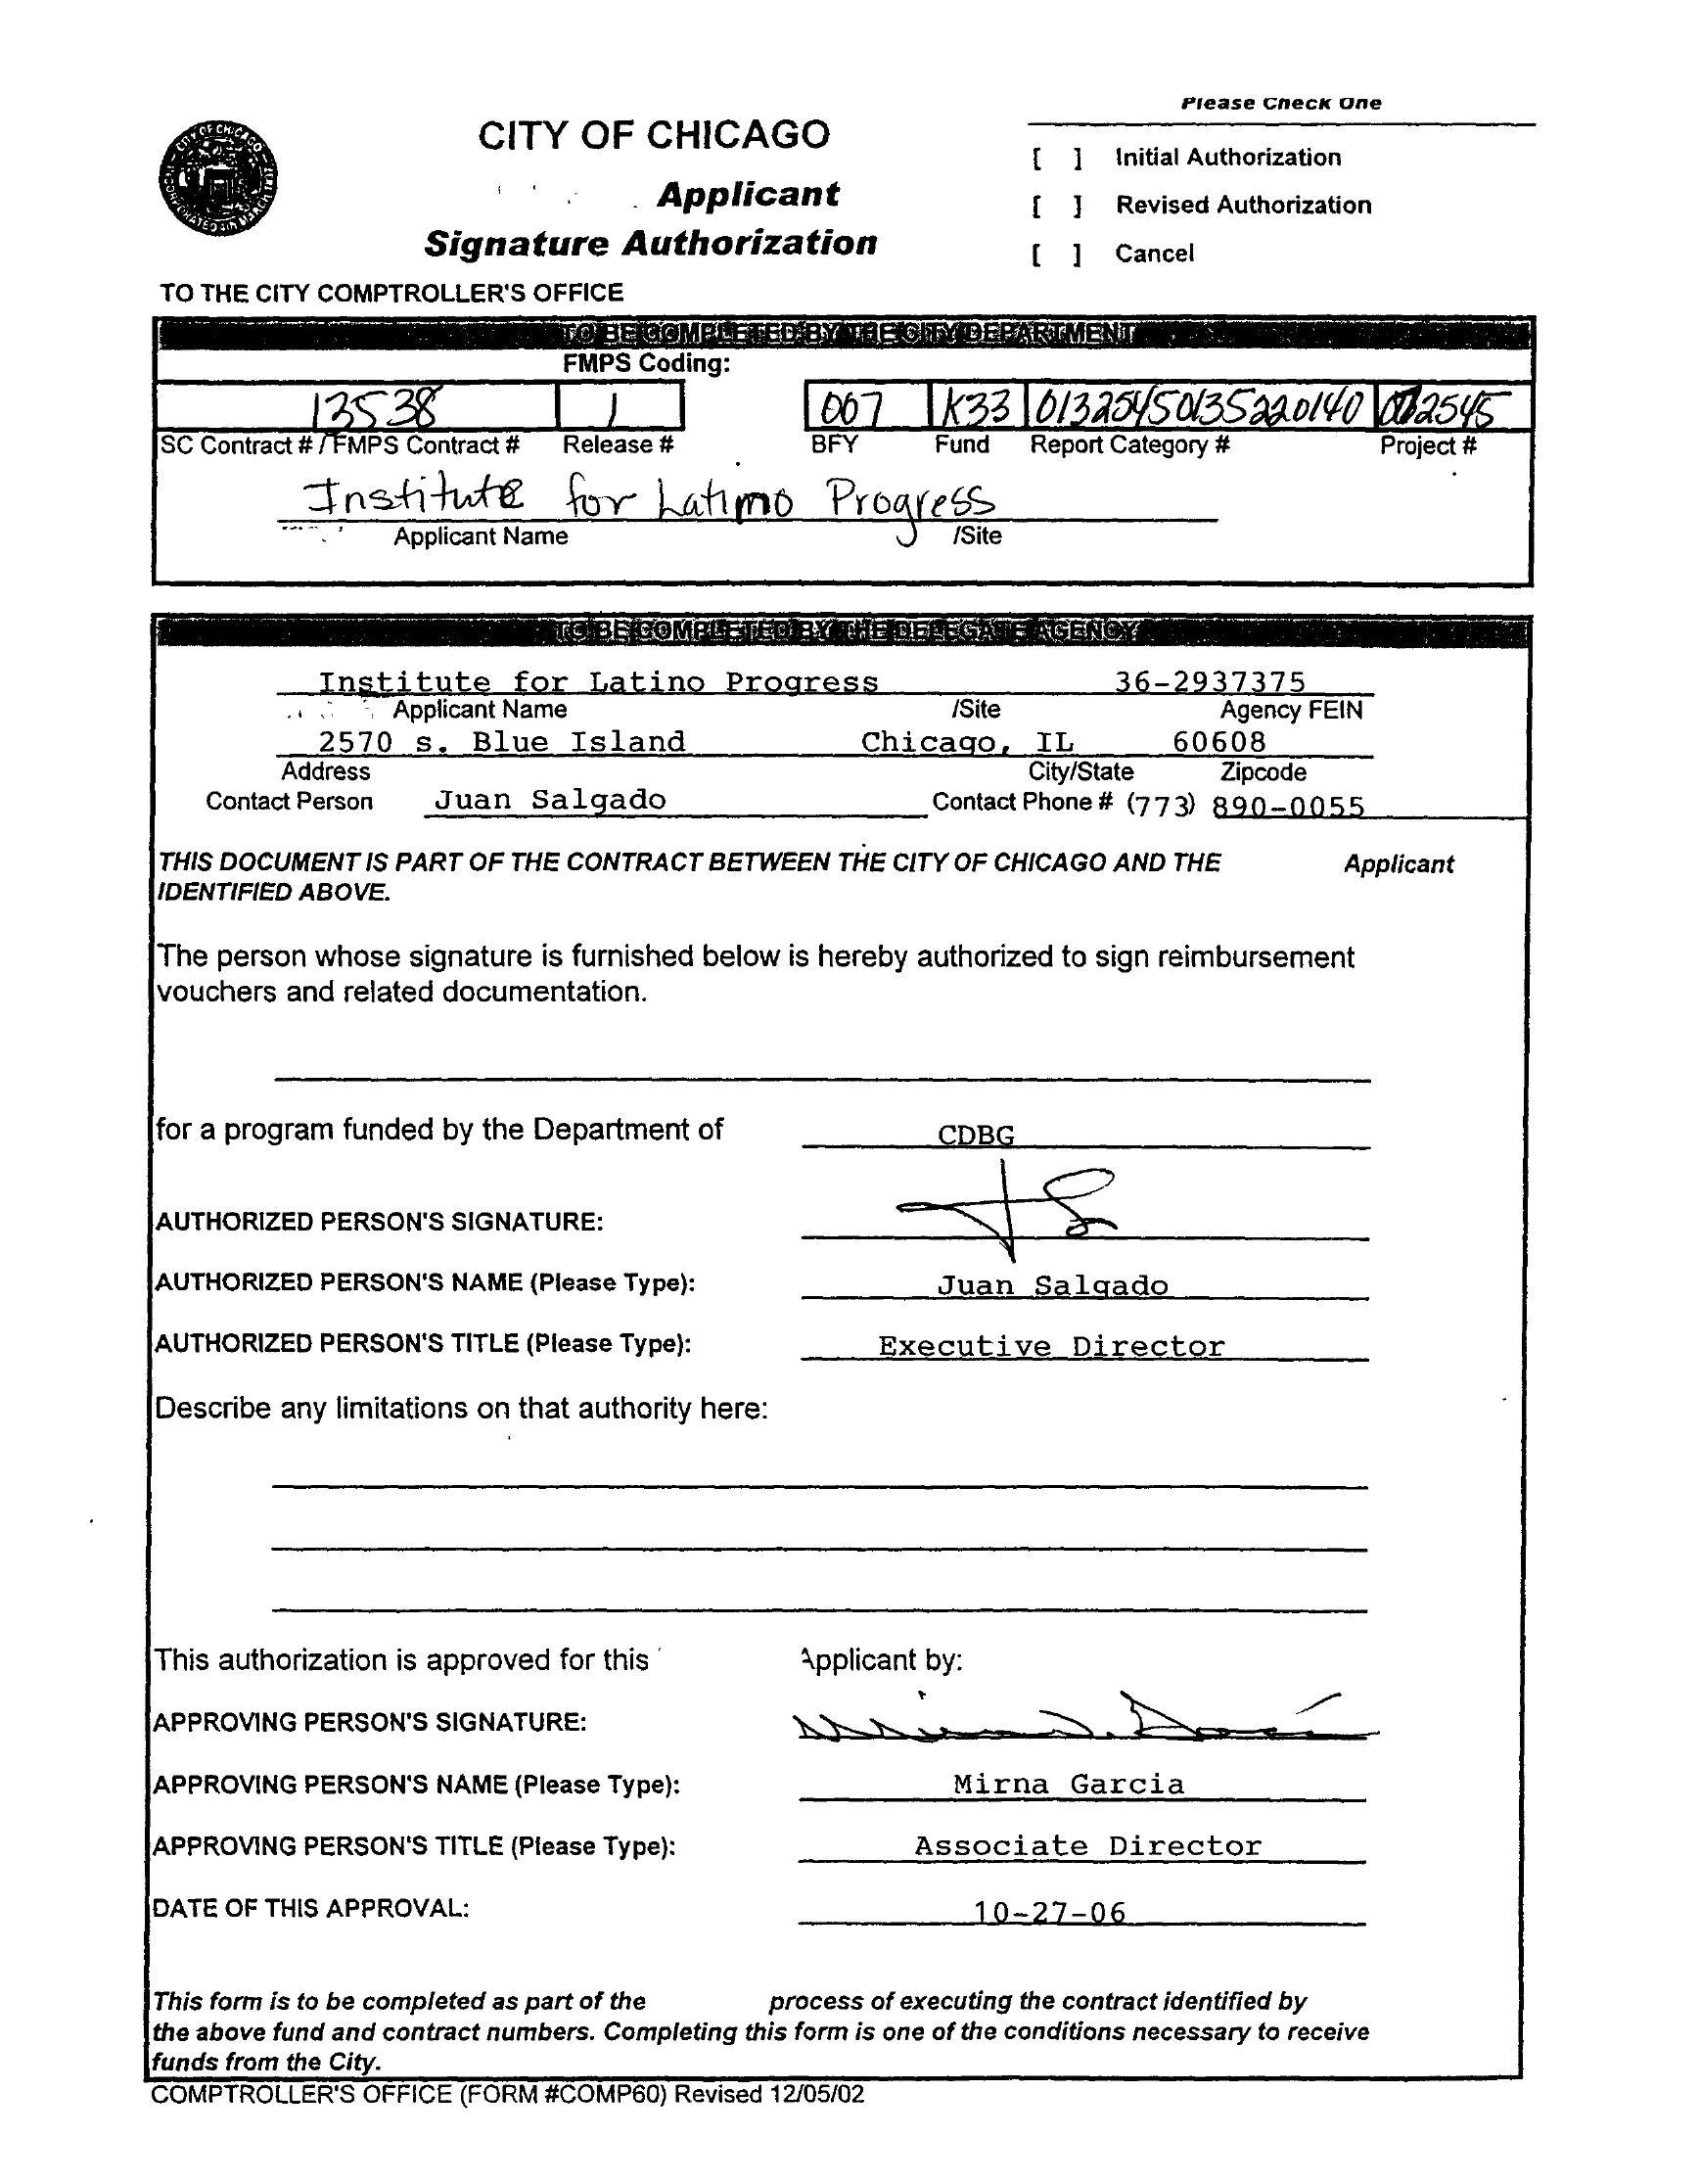 Please Check One
CITY OF CHICAGO
[ ] Initial Authorization
Applicant
[ ] Revised Authorization
Signature Authorization
[ ] Cancel
TO THE CITY COMPTROLLER'S OFFICE
TO BE COMPLETED BY THE CITY DEPARTMENT
FMPS Coding:
13538 1 007 K33 01325450135220140 002545
SC Contract # / FMPS Contract # Release # BFY Fund Report Category # Project #
Institute for Latino Progress
Applicant Name /Site
TO BE COMPLETED BY THE DELEGATE AGENCY
Institute for Latino Progress 36-2937375
Applicant Name /Site Agency FEIN
2570 s. Blue Island Chicago, IL 60608
Address City/State Zipcode
Contact Person Juan Salgado Contact Phone # (773) 890-0055
THIS DOCUMENT IS PART OF THE CONTRACT BETWEEN THE CITY OF CHICAGO AND THE Applicant
IDENTIFIED ABOVE.
The person whose signature is furnished below is hereby authorized to sign reimbursement
vouchers and related documentation.
for a program funded by the Department of CDBG
AUTHORIZED PERSON'S SIGNATURE:
AUTHORIZED PERSON'S NAME (Please Type): Juan Salgado
AUTHORIZED PERSON'S TITLE (Please Type): Executive Director
Describe any limitations on that authority here:
This authorization is approved for this Applicant by:
APPROVING PERSON'S SIGNATURE:
APPROVING PERSON'S NAME (Please Type): Mirna Garcia
APPROVING PERSON'S TITLE (Please Type): Associate Director
DATE OF THIS APPROVAL: 10-27-06
This form is to be completed as part of the process of executing the contract identified by
the above fund and contract numbers. Completing this form is one of the conditions necessary to receive
funds from the City.
COMPTROLLER'S OFFICE (FORM #COMP60) Revised 12/05/02